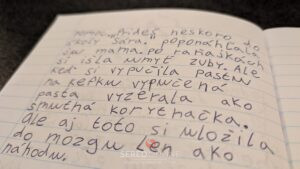 neskoro do
školy Sára. poponáhľala
ju mama. po raňajkách
si išla umyť zuby. Ale
keď si vypučila pastu
na kefku vypučená
pasta vyzerala ako
smutná korytnačka.
Ale aj toto si uložila
do mozgu Len ako
náhodu.